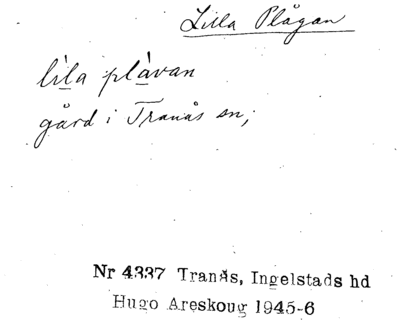 Lilla Plågan
lìla plàvan
gård i Tranås sn;
Nr 4337 Tranås, Ingelstads hd
Hugo Areskoug 1945-6